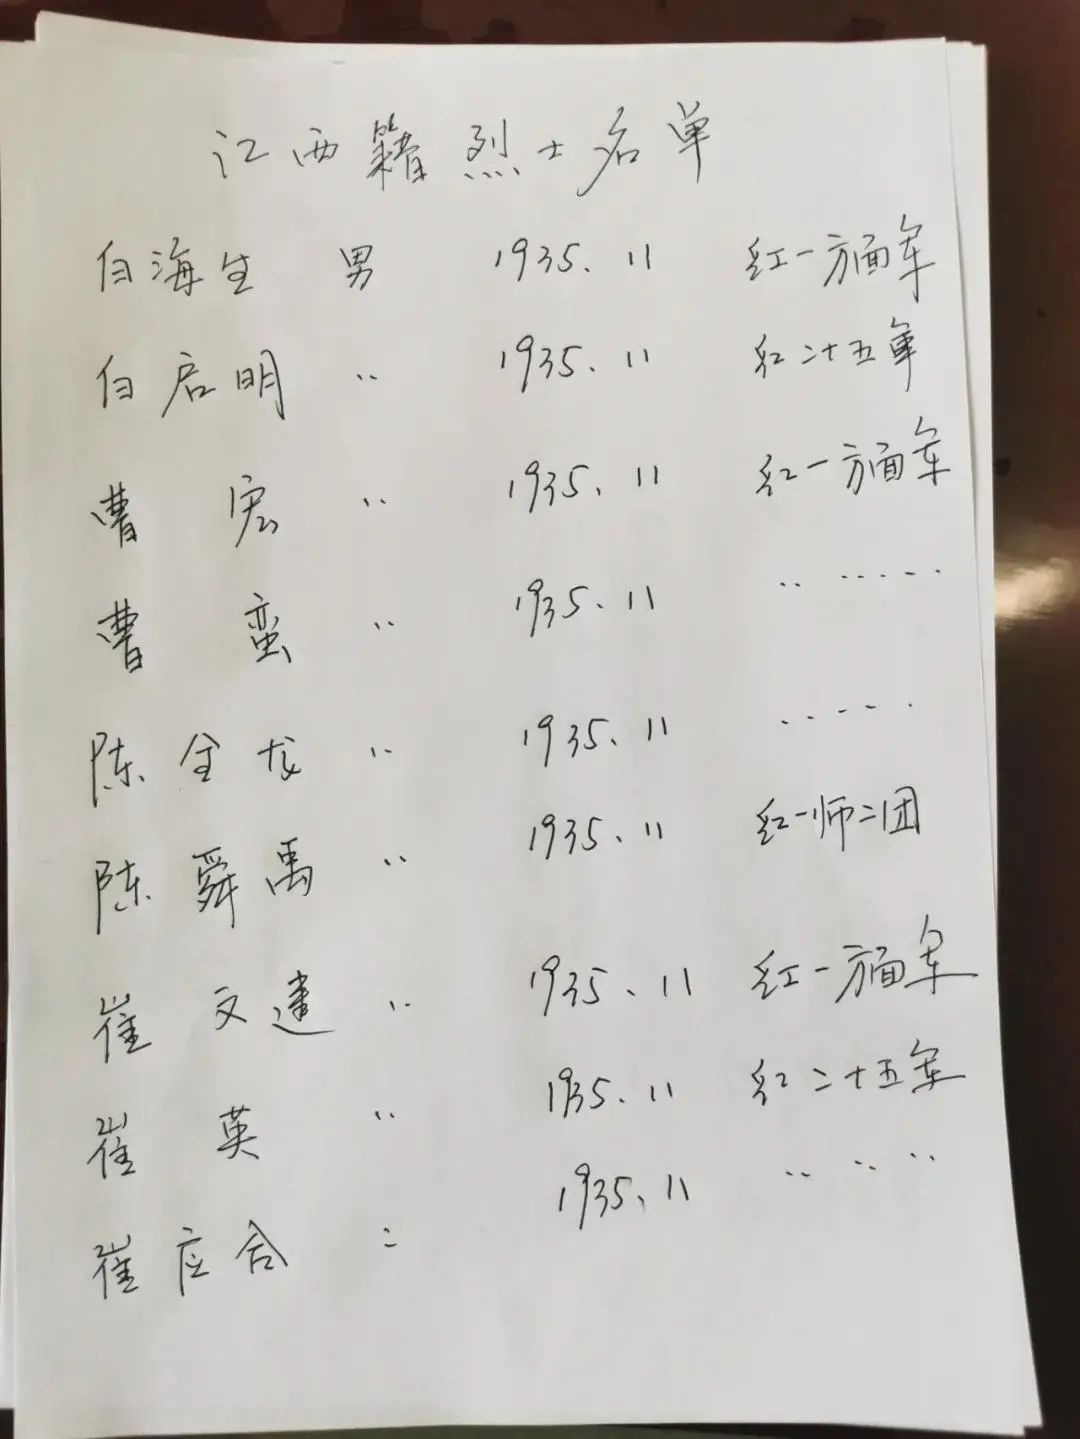 江西籍烈士名单
白海生 男 1935.11 红一方面军
白启明 〃 1935.11 红二十五军
曹宏 〃 1935.11 红一方面军
曹蛮 〃 1935.11 〃 〃 〃 〃
陈全龙 〃 1935.11 〃 〃 〃 〃
陈舜禹 〃 1935.11 红一师二团
崔文建 〃 1935.11 红一方面军
崔英 〃 1935.11 红二十五军
崔应合 〃 1935.11 〃 〃 〃